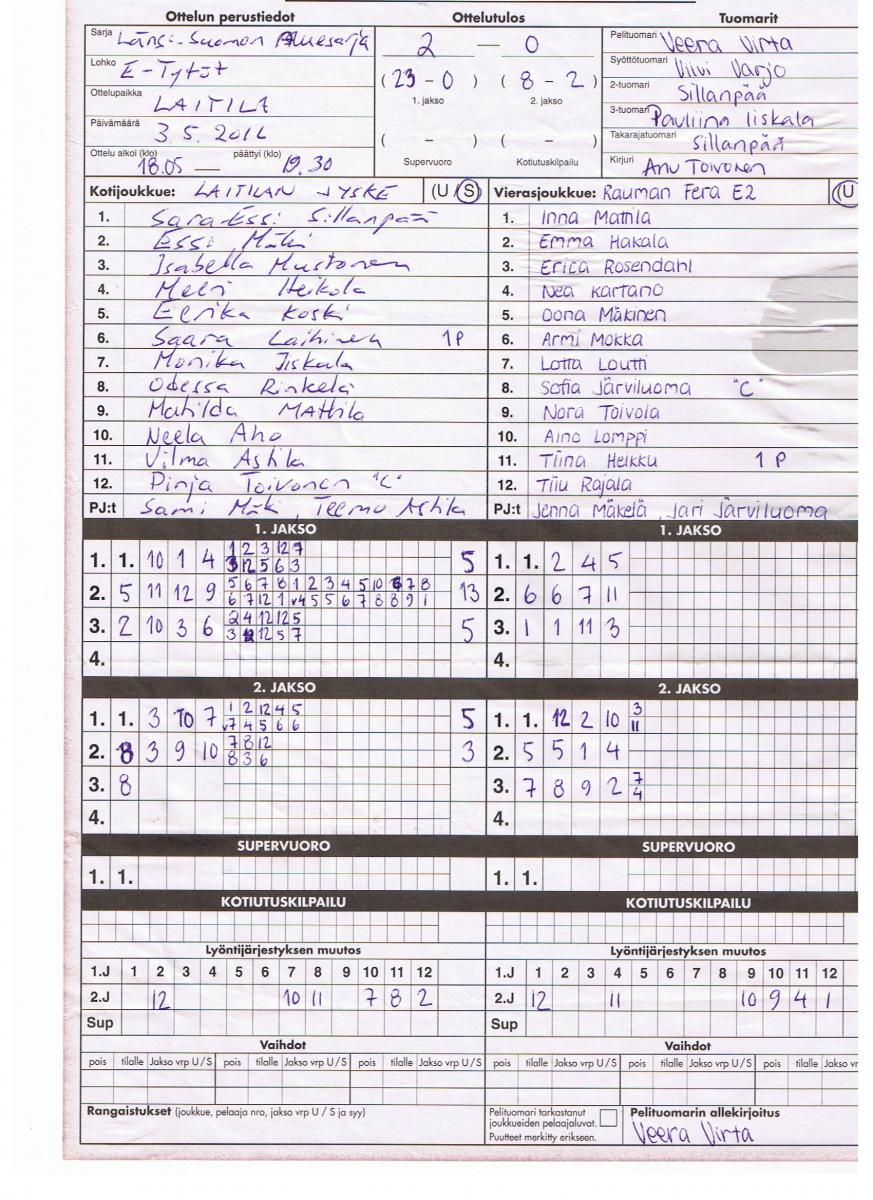 Ottelun perustiedot Ottelutulos Tuomarit
Sarja Länsi-Suomen Aluesarja 2 — 0 Pelituomari Veera Virta
Lohko E-Tytöt (23 - 0) (8 - 2) Syöttötuomari Viivi Varjo
1. jakso 2. jakso
Ottelupaikka LAITILA 2-tuomari Sillanpää
Päivämäärä 3.5.2016 ( - ) ( - ) 3-tuomari Pauliina Iiskala
Takarajatuomari Sillanpää
Ottelu alkoi (klo) 18.05 — päättyi (klo) 19.30 Supervuoro Kotiutuskilpailu Kirjuri Anu Toivonen
Kotijoukkue: LAITILAN JYSKE (U / S) Vierasjoukkue: Rauman Fera E2 (U
1. Sara-Essi Sillanpää 1. Inna Mattila
2. Essi Mäki 2. Emma Hakala
3. Isabella Mustonen 3. Erica Rosendahl
4. Meeri Heikola 4. Nea Kartano
5. Eerika Koski 5. Oona Mäkinen
6. Saara Laihinen 1P 6. Armi Mokka
7. Monika Iiskala 7. Lotta Loutti
8. Odessa Rinkelä 8. Sofia Järviluoma "C"
9. Matilda Mattila 9. Nora Toivola
10. Neela Aho 10. Aino Lomppi
11. Vilma Astila 11. Tiina Heikku 1 P
12. Pinja Toivonen "C" 12. Tiiu Rajala
PJ:t Sami Mäki, Teemu Astila PJ:t Jenna Mäkelä, Jari Järviluoma
1. JAKSO 1. JAKSO
1 2 3 12 7
1. 1. 10 1 4 3 12 5 6 3 5 1. 1. 2 4 5
5 6 7 8 1 2 3 4 5 10 6 7 8
2. 5 11 12 9 6 7 12 1 v4 5 5 6 7 8 8 9 1 13 2. 6 6 7 11
2 4 12 12 5
3. 2 10 3 6 3 12 5 7 5 3. 1 1 11 3
4. 4.
2. JAKSO 2. JAKSO
1 2 12 4 5 3
1. 1. 3 10 7 v7 4 5 6 6 5 1. 1. 12 2 10 11
7 8 12
2. 8 3 9 10 8 3 6 3 2. 5 5 1 4
3. 8 3. 7 8 9 2 7 4
4. 4.
SUPERVUORO SUPERVUORO
1. 1. 1. 1.
KOTIUTUSKILPAILU KOTIUTUSKILPAILU
Lyöntijärjestyksen muutos Lyöntijärjestyksen muutos
1.J 1 2 3 4 5 6 7 8 9 10 11 12 1.J 1 2 3 4 5 6 7 8 9 10 11 12
2.J 12 10 11 7 8 2 2.J 12 11 10 9 4 1
Sup Sup
Vaihdot Vaihdot
pois tilalle Jakso vrp U / S pois tilalle Jakso vrp U / S pois tilalle Jakso vrp U / S pois tilalle Jakso vrp U / S pois tilalle Jakso vrp U / S pois tilalle Jakso vr
Rangaistukset (joukkue, pelaaja nro, jakso vrp U / S ja syy) Pelituomari tarkastanut Pelituomarin allekirjoitus
joukkueiden pelaajaluvat.
Puutteet merkitty erikseen. Veera Virta